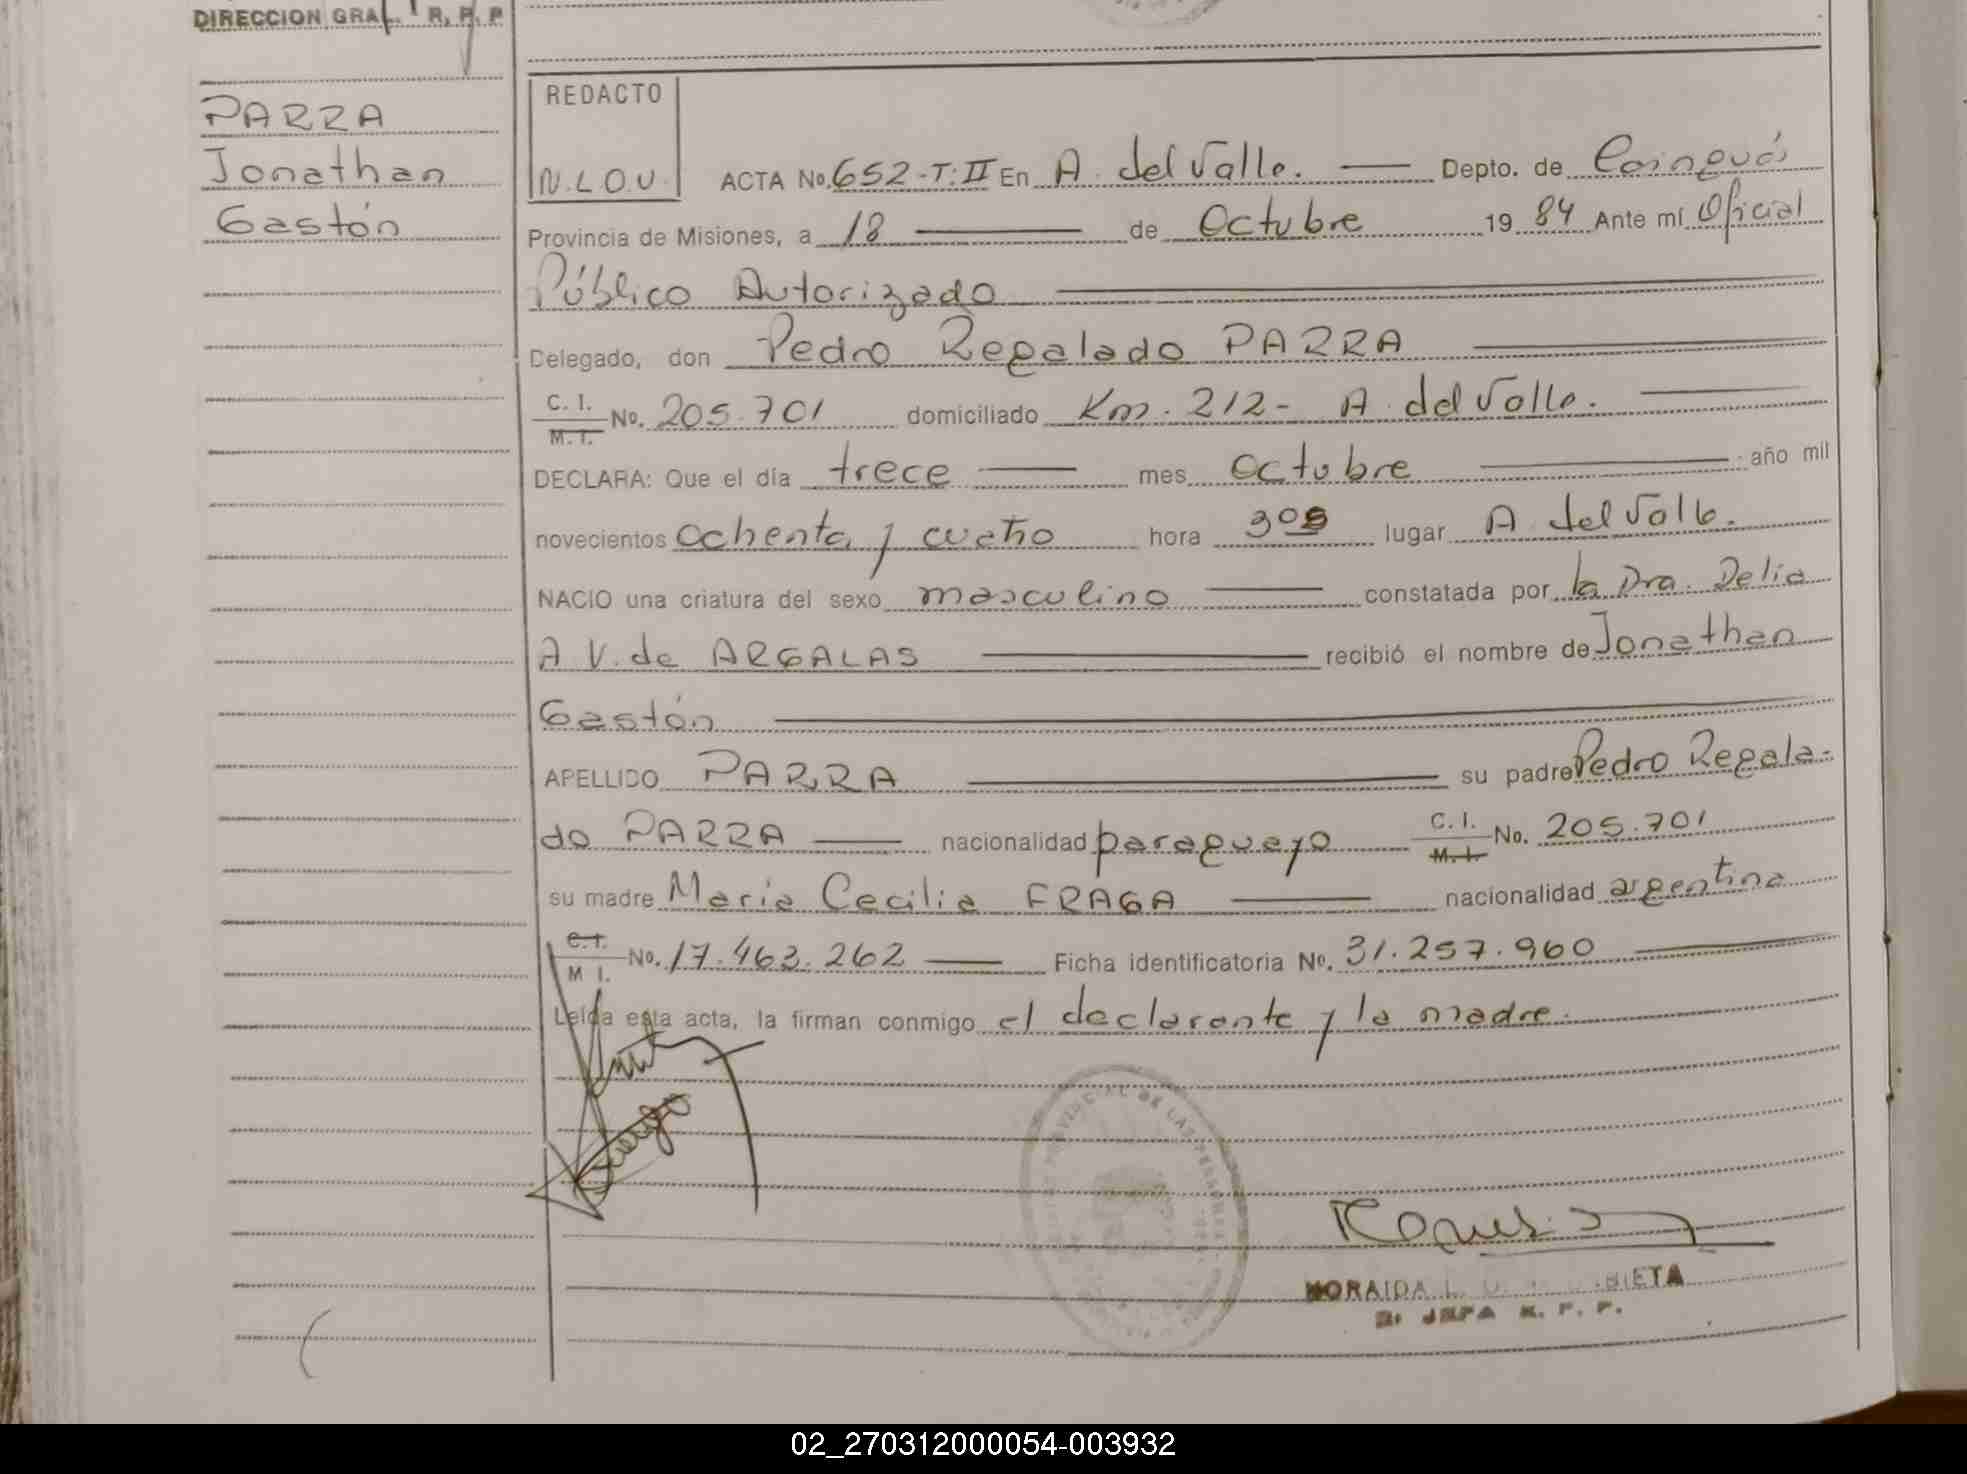 DIRECCION GRAL. R. P. P.
PARRA
Jonathan
Gastón
REDACTO
N.L.O.U.
ACTA No. 652-T:II En A. del Valle. Depto. de Cainguás
Provincia de Misiones, a 18 de Octubre 19 84 Ante mí Oficial
Público Autorizado
Delegado, don Pedro Regalado PARRA
C. I.
M. I. No. 205.701 domiciliado Km. 212- A. del Valle.
DECLARA: Que el día trece mes octubre año mil
novecientos ochenta y cuatro hora lugar A del Valle.
NACIO una criatura del sexo masculino constatada por la Dra. Delia
A V. de ARGALAS recibió el nombre de Jonathan
Gastón
APELLIDO PARRA su padre Pedro Regala-
do PARRA nacionalidad paraguayo C. I. M. I. No. 205.701
su madre Maria Cecilia FRAGA nacionalidad argentina
C. I.
M I. No. 17.463.262 Ficha identificatoria No. 31.257.960
Leída esta acta, la firman conmigo el declarante y la madre.
PROVINCIAL DE LAS PERSONAS
NORAIDA L. BIETA
JEFA R. P. P.
02_270312000054-003932